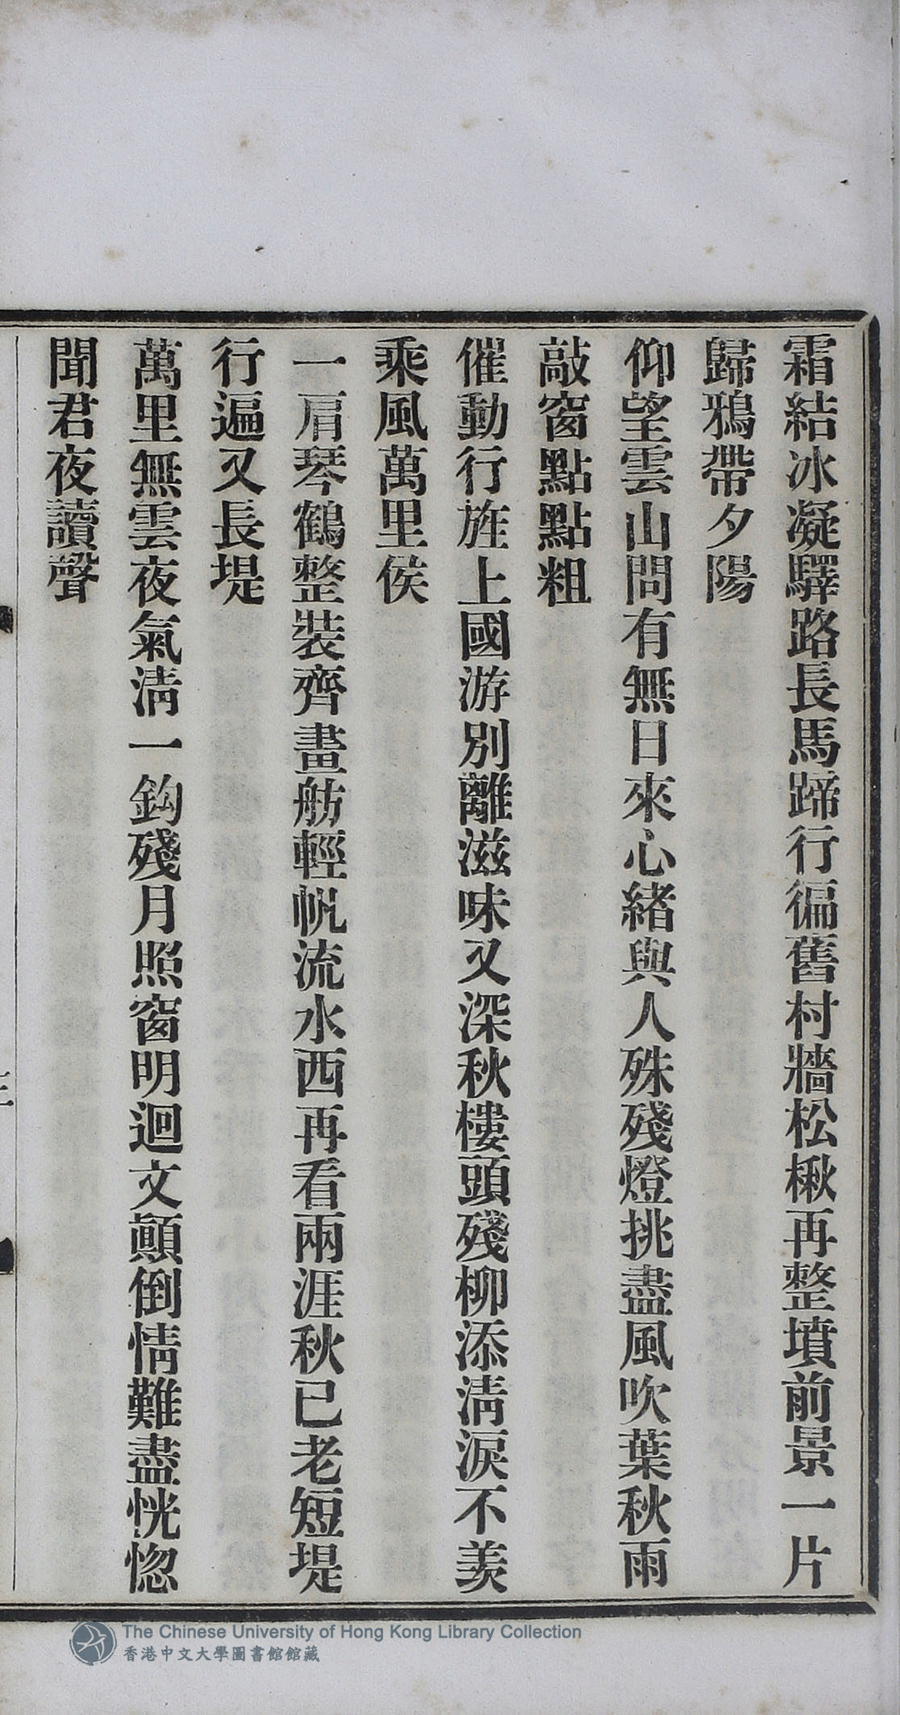 霜結冰凝驛路長馬蹄行徧舊村牆松楸再整墳前景一片
歸鴉帶夕陽
仰望雲山問有無日來心緒與人殊殘燈挑盡風吹葉秋雨
敲窗點點粗
催動行旌上國游別離滋味又深秋樓頭殘柳添淸淚不羨
乘風萬里侯
一肩琴鶴整裝齊畫舫輕帆流水西再看兩涯秋已老短堤
行遍又長堤
萬里無雲夜氣淸一鈎殘月照窗明迴文顚倒情難盡恍惚
聞君夜讀聲
The Chinese University of Hong Kong Library Collection
香港中文大學圖書館館藏